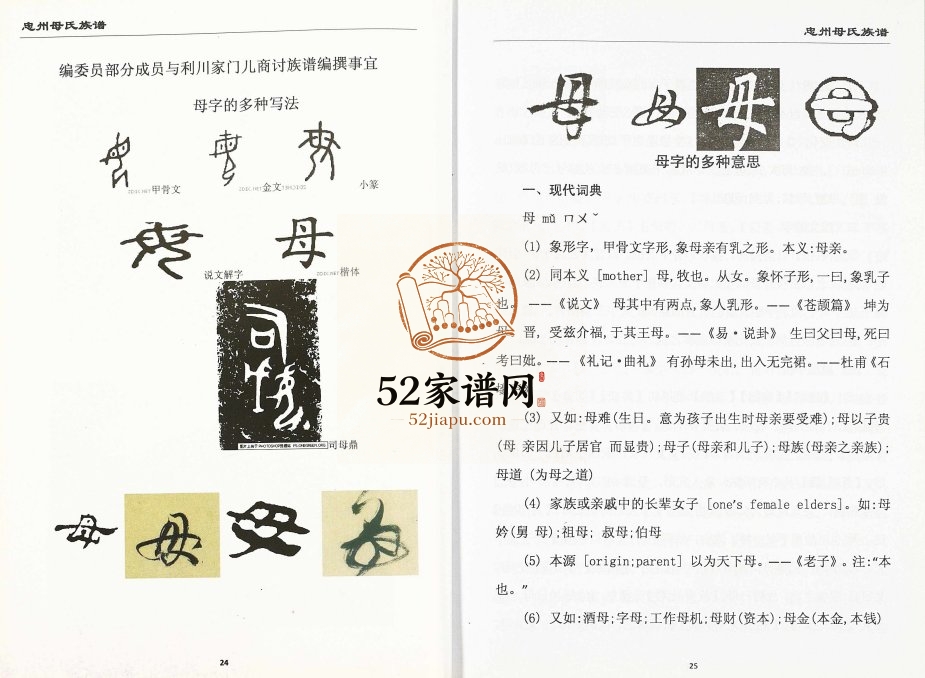 忠州母氏族谱
编委员部分成员与利川家门儿商讨族谱编撰事宜
母字的多种写法
ZDIC.NET 甲骨文
ZDIC.NET 金文
小篆
说文解字
母
ZDIC.NET 楷体
司母
司母鼎
母 母 母 母
24
忠州母氏族谱
母 母 母 母
母字的多种意思
一、现代词典
母 mǔ ㄇㄨˇ
(1) 象形字，甲骨文字形,象母亲有乳之形。本义:母亲。
(2) 同本义 [mother] 母,牧也。从女。象怀子形,一曰,象乳子
也。 ——《说文》 母其中有两点,象人乳形。——《苍颉篇》 坤为
晋, 受兹介福,于其王母。——《易·说卦》 生曰父曰母,死曰
考曰妣。—— 《礼记·曲礼》 有孙母未出,出入无完裙。——杜甫《石
52家谱网
52jiapu.com
(3) 又如:母难(生日。意为孩子出生时母亲要受难);母以子贵
(母 亲因儿子居官 而显贵);母子(母亲和儿子);母族(母亲之亲族);
母道 (为母之道)
(4) 家族或亲戚中的长辈女子 [one's female elders]。如:母
妗(舅 母);祖母; 叔母;伯母
(5) 本源 [origin;parent] 以为天下母。——《老子》。注:“本
也。”
(6) 又如:酒母;字母;工作母机;母财(资本);母金(本金,本钱)
25